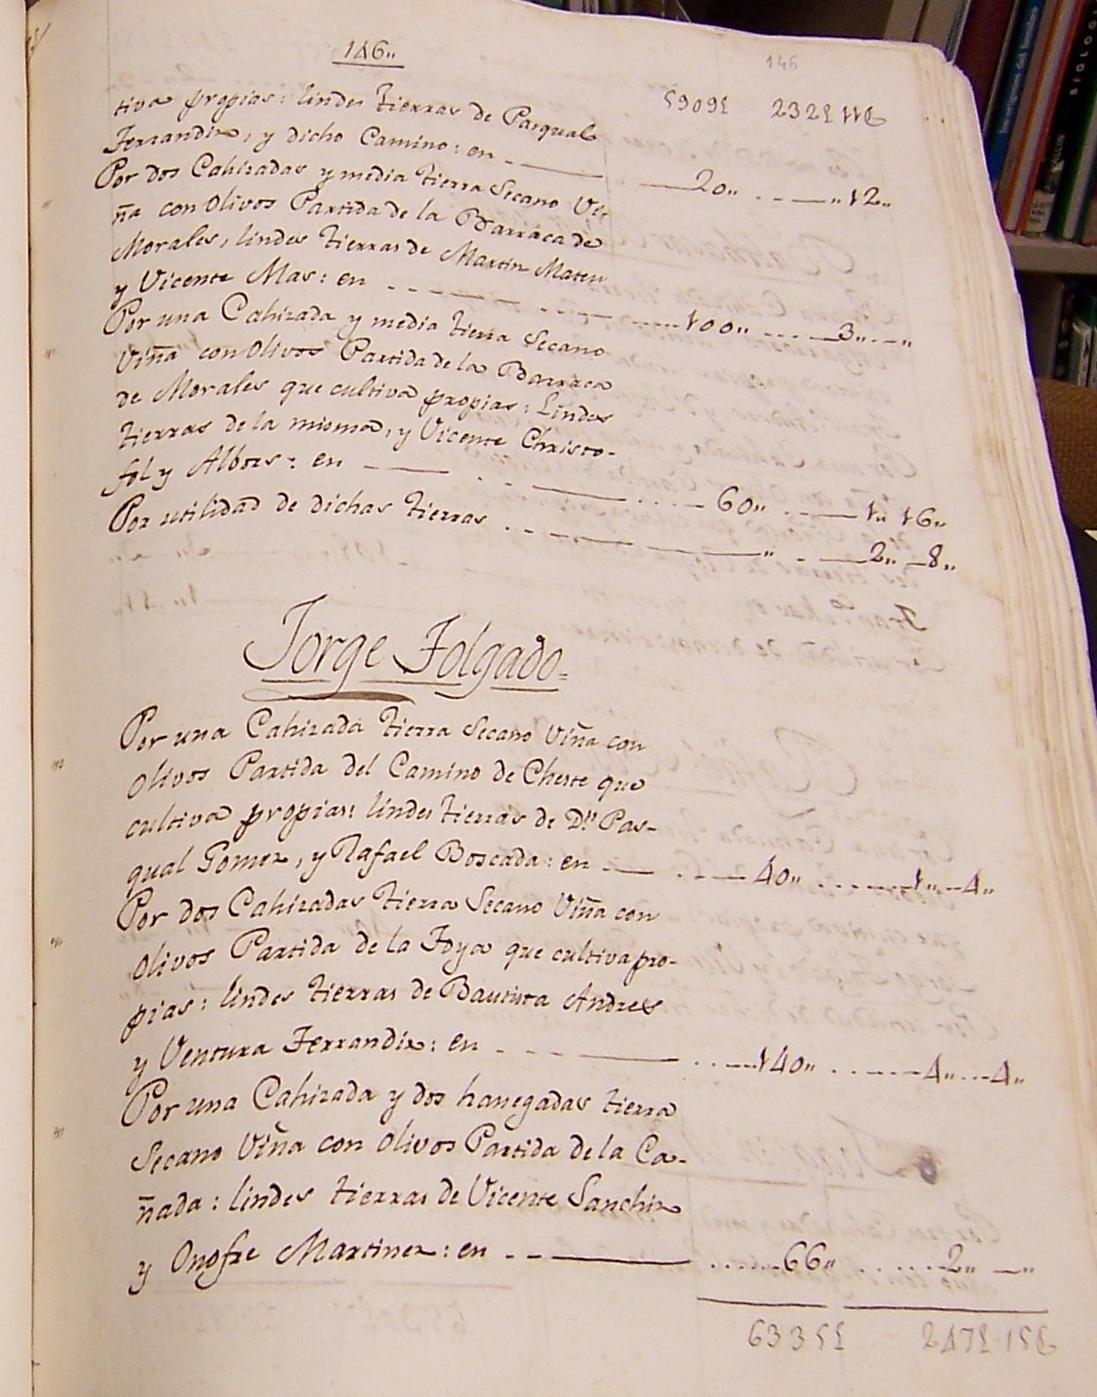 146..
146
5909£ 232£11§
tiva propias: lindes tierras de Pasqual
Ferrandiz, y dicho Camino: en - —— 20,, - - — ,,12,,
Por dos Cahizadas y media tierra Secano Vi-
ña con Olivos Partida de la Barraca de
Morales, lindes tierras de Martin Mateu
y Vicente Mas: en - - - - - 100,, - - - 3,, - ,,
Por una Cahizada y media tierra Secano
Viña con Olivos Partida de la Barraca
de Morales que cultiva propias: Lindes
tierras de la misma, y Vicente Christo-
fol y Albors: en - —— 60,, - - — 1,, 16,,
Por utilidad de dichas tierras - - - — ,, - — 2,, — 8,,
Jorge Folgado
Por una Cahizada tierra Secano Viña con
Olivos Partida del Camino de Cheste que
cultiva propias: lindes tierras de Dn. Pas-
qual Gomez, y Rafael Boscada: en - — 40,, - - - 1,, — 4,,
Por dos Cahizadas tierra Secano Viña con
Olivos Partida de la Foya que cultiva pro-
pias: lindes tierras de Bautista Andres
y Ventura Ferrandiz: en - - - —— 140,, - - - 4,, - - 4,,
Por una Cahizada y dos hanegadas tierra
Secano Viña con Olivos Partida de la Ca-
ñada: lindes tierras de Vicente Sanchiz
y Onofre Martinez: en - - —— 66,, - - - 2,, — ,,
6335£ 247£15§